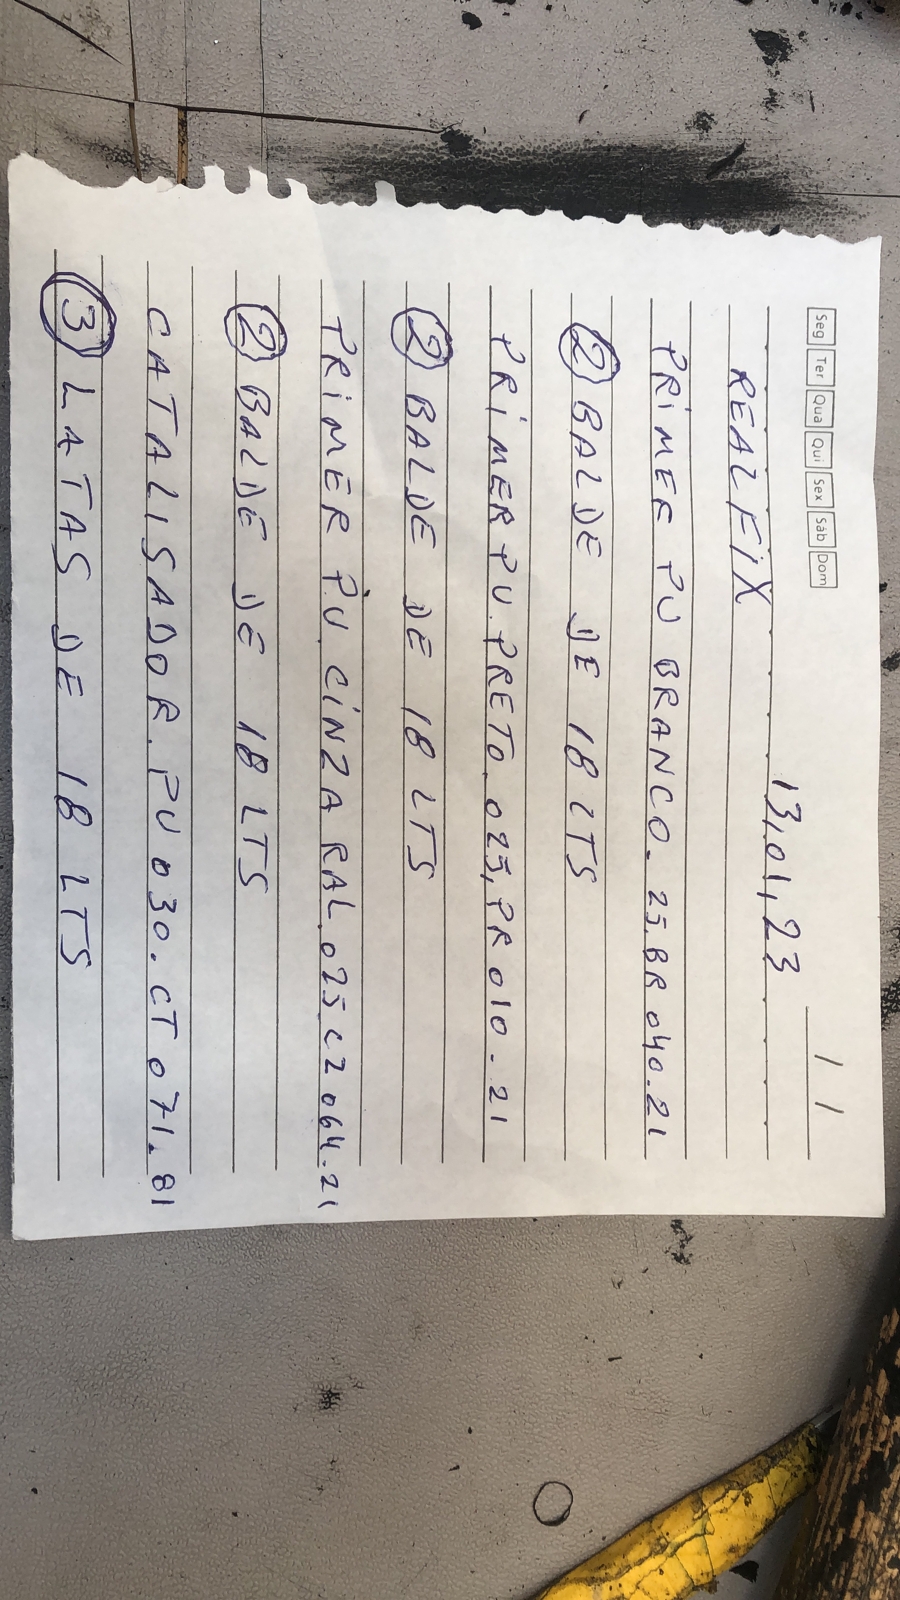 Seg Ter Qua Qui Sex Sáb Dom
/ /
13,01,23
REALFIX
PRIMER PU BRANCO. 25.BR 040.21
2 BALDE DE 18 LTS
PRIMER PU. PRETO. 025, PR 010-21
2 BALDE DE 18 LTS
PRIMER P.U. CINZA RAL. 025 CZ 064.21
2 BALDE DE 18 LTS
CATALISADOR. PU 030. CT 071.81
3 LATAS DE 18 LTS